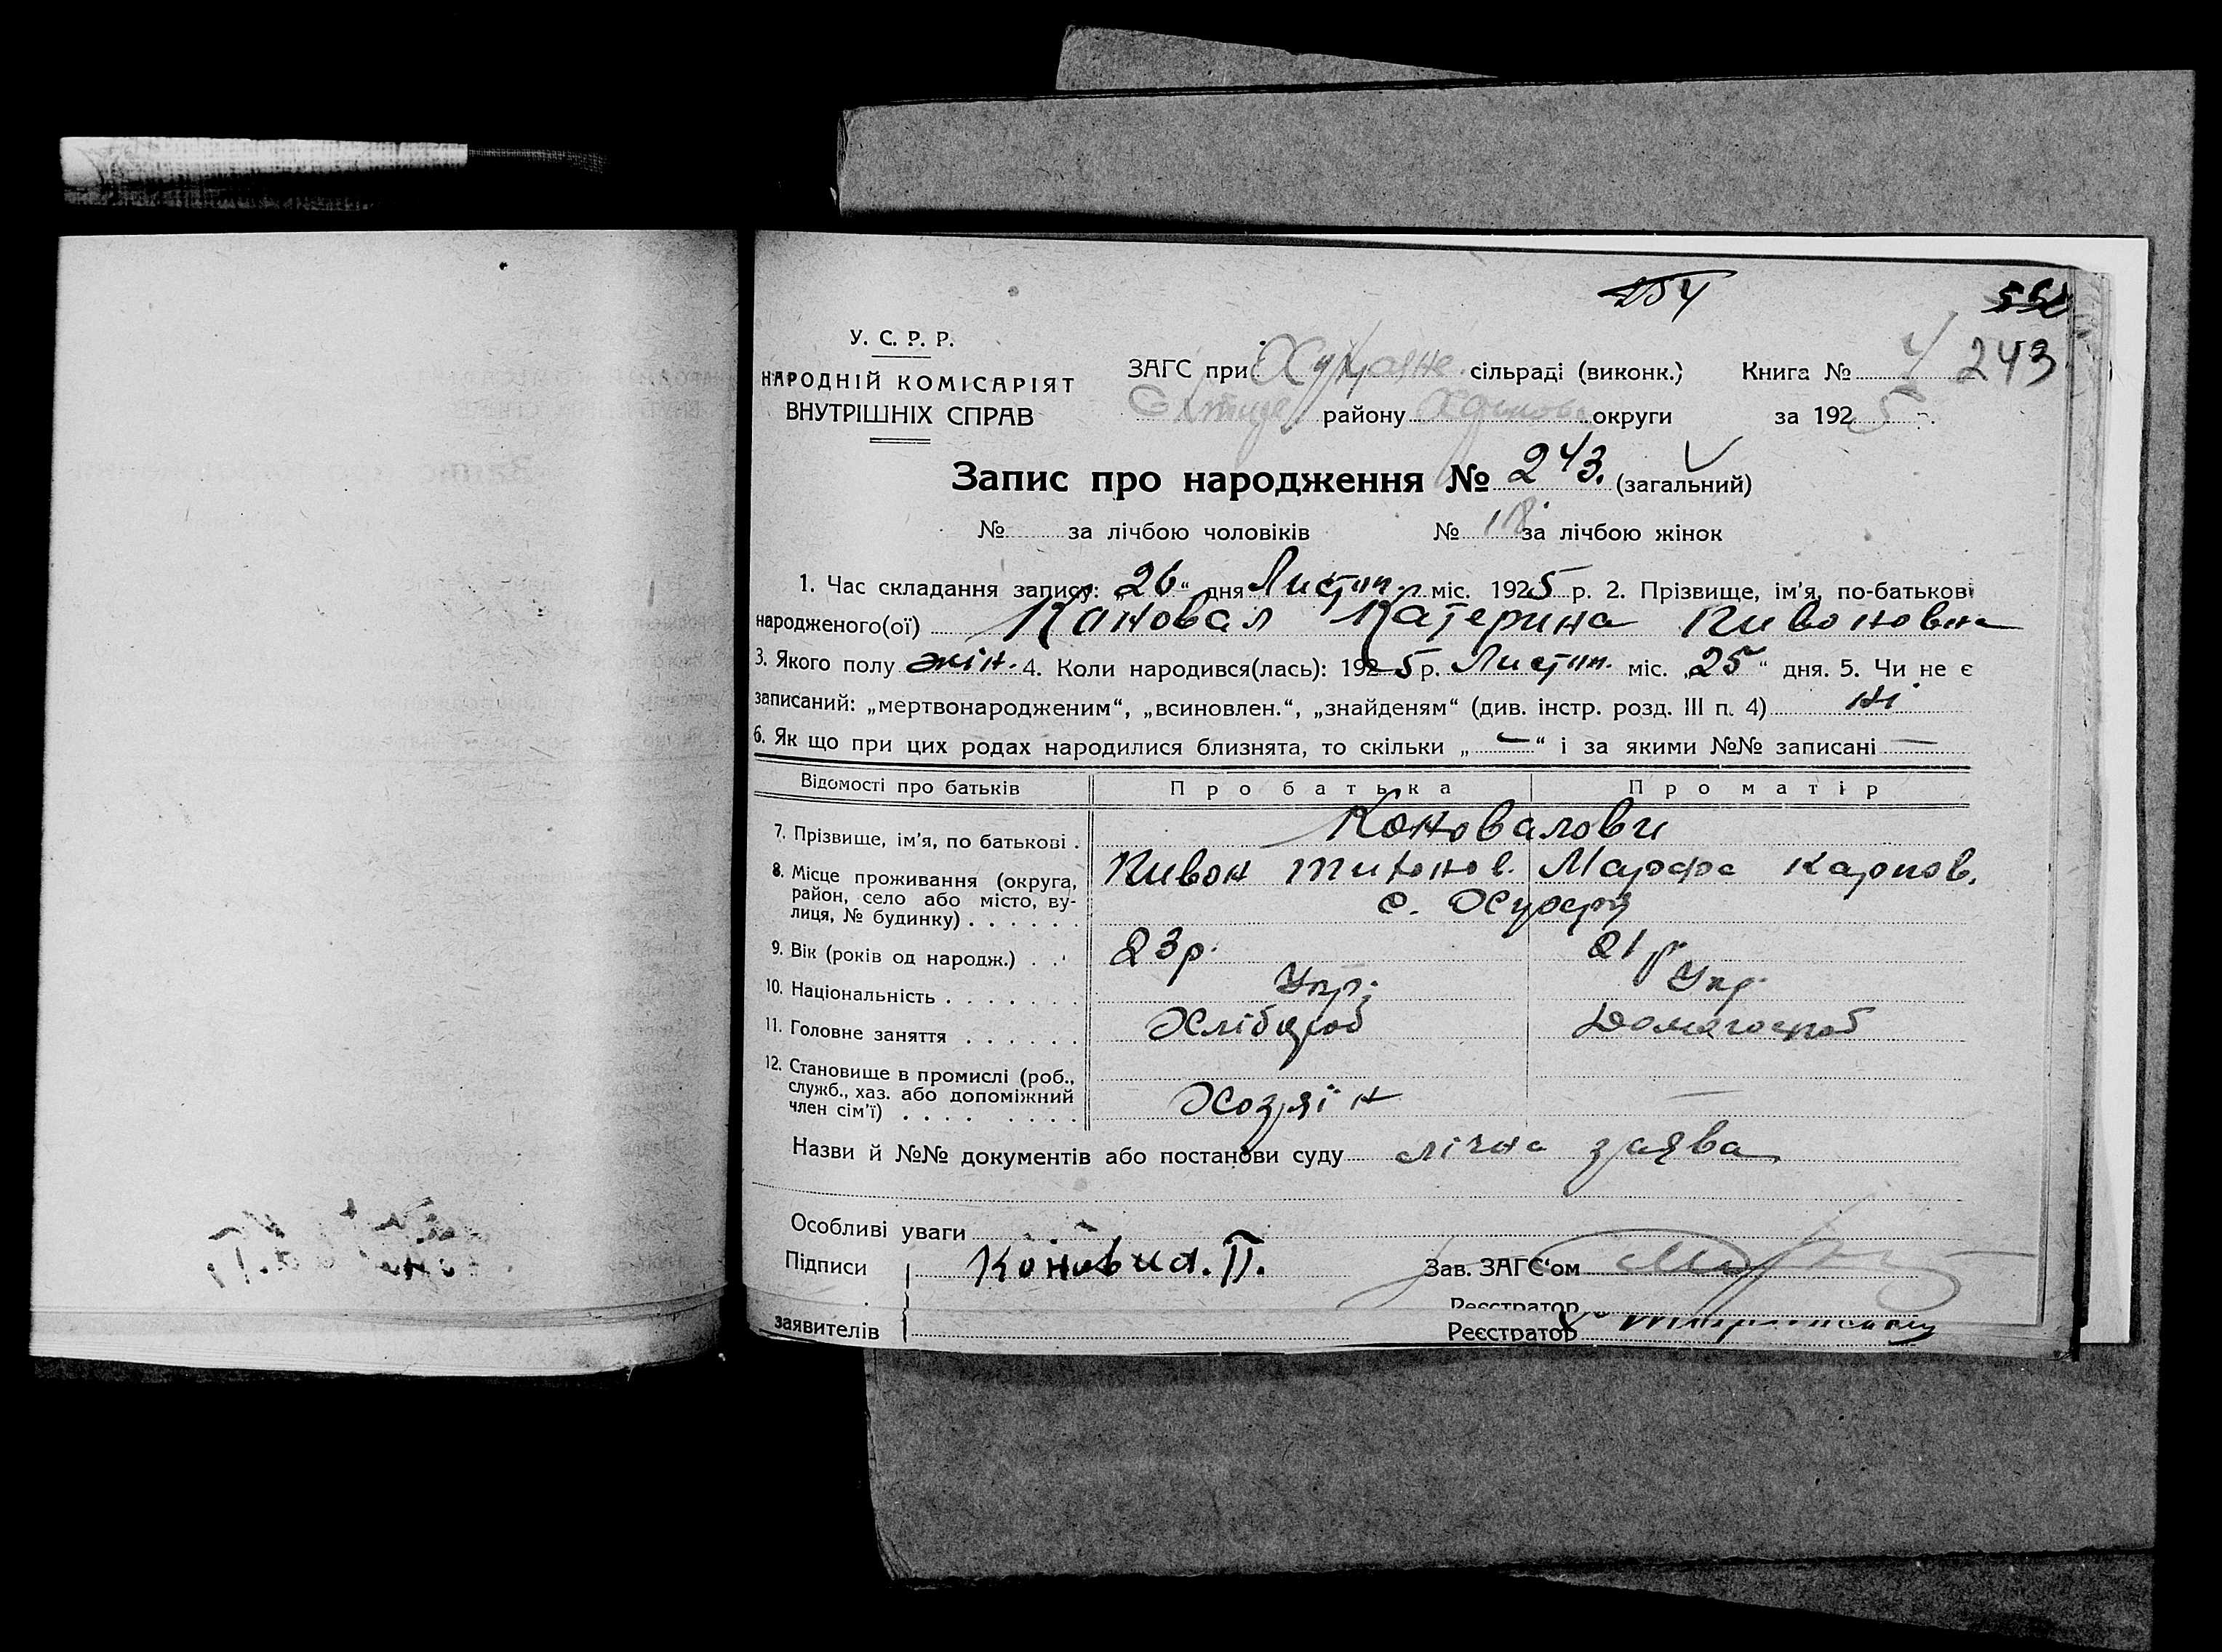 254
У. С. Р. Р.
НАРОДНІЙ КОМІСАРІЯТ
ВНУТРІШНІХ СПРАВ
ЗАГС при сільраді (виконк.) Книга № 4 243
району округи за 1925 р.
Запис про народження № 243. (загальний)
№ за лічбою чоловіків № 18 за лічбою жінок
1. Час складання запису: „26“ дня Листоп. міс. 1925 р. 2. Прізвище, ім'я, по-батькові
народженого(ої) Коновал Катерина Пивоновна
3. Якого полу жін. 4. Коли народився(лась): 1925 р. Листоп. міс. „25“ дня. 5. Чи не є
записаний: „мертвонародженим“, „всиновлен.“, „знайденям“ (див. інстр. розд. III п. 4) ні
6. Як що при цих родах народилися близнята, то скільки „—“ і за якими №№ записані —
Відомості про батьків Про батька Про матір
7. Прізвище, ім'я, по батькові . Коновалови
Пивон Тихонов. Марфа Карпов.
8. Місце проживання (округа,
район, село або місто, ву-
лиця, № будинку) . . . . . . с.
9. Вік (років од народж.) . . 23р. 21р
10. Національність . . . . . . . Укр. Укр.
11. Головне заняття . . . . . . Хлібороб Домогосроб
12. Становище в промислі (роб.,
служб., хаз. або допоміжний
член сім'ї) . . . . . . . . Хозяін —
Назви й №№ документів або постанови суду лічна заява
Особливі уваги
Підписи Коновал. П. Зав. ЗАГС'ом
Реєстратор
заявителів Реєстратор